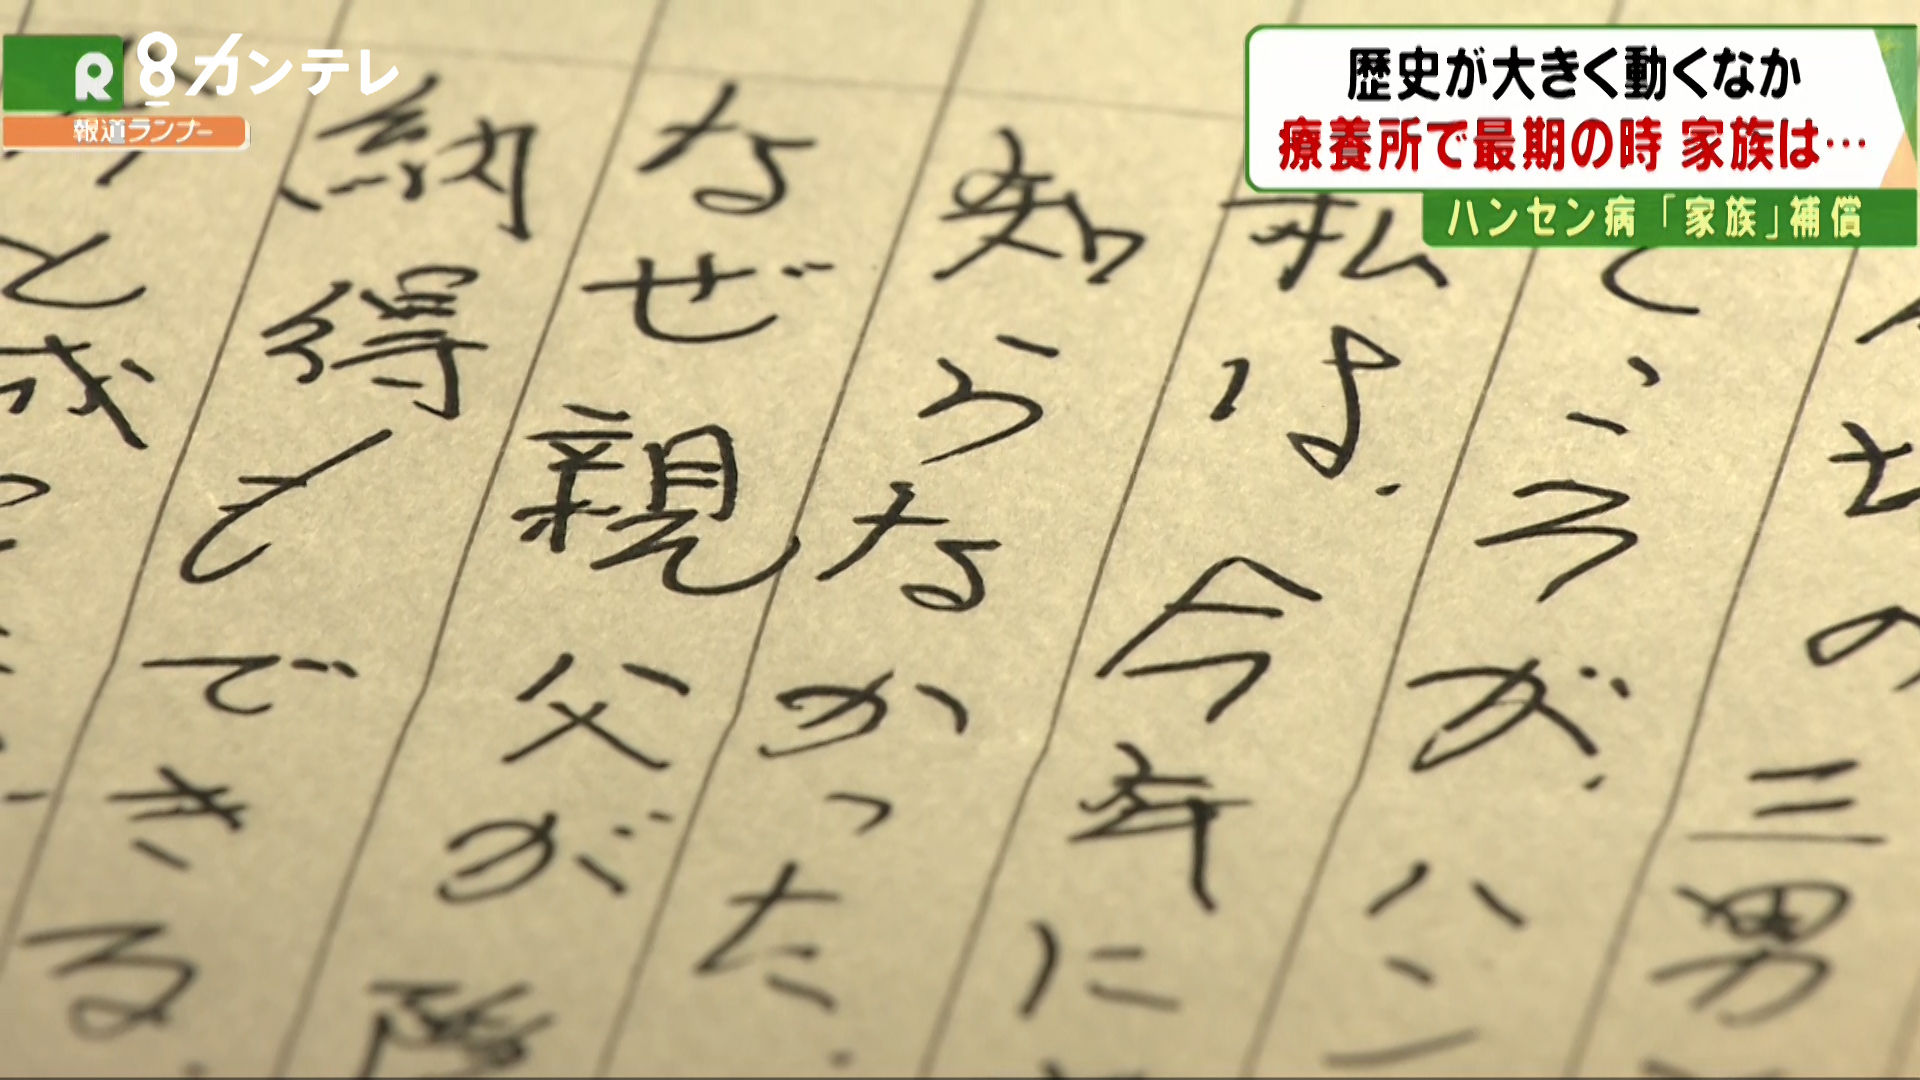 8カンテレ
R
報道ランナー
歴史が大きく動くなか
療養所で最期の時 家族は…
ハンセン病「家族」補償
の三男
ところが、ハン
私は、今年に
知らなかった。
なぜ親父が隠
納得もできる。
と成っ